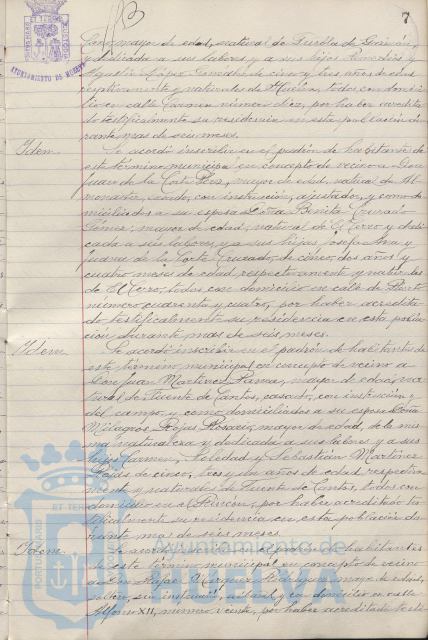 7
AYUNTAMIENTO DE HUELVA
mayor de edad, natural de Puebla de Guzmán,
y dedicada a sus labores y a sus hijos Remedios y
Agustín López González de cinco y tres años de edad
respectivamente y naturales de Huelva, todos con domici-
lio en calle Carmen número diez, por haber acredita-
do testificalmente su residencia en esta población du-
rante mas de seis meses.
Idem. Se acordó inscribir en el padrón de habitantes de
este término municipal en concepto de vecino a Don
Juan de la Corte Pérez, mayor de edad, natural de Al-
monaster, casado, con instrucción, ajustador, y como do-
miciliados a su esposa Doña Benita Cruzado
Gómez, mayor de edad, natural de El Cerro y dedi-
cada a sus labores, y a sus hijas Josefa Ana y
Juana de la Corte Cruzado, de cinco, dos años y
cuatro meses de edad respectivamente y naturales
de El Cerro, todos con domicilio en calle de Puerto
número cuarenta y cuatro, por haber acredita-
do testificalmente su residencia en esta pobla-
ción durante mas de seis meses.
Idem. Se acordó inscribir en el padrón de habitantes de
este término municipal en concepto de vecino a
Don Juan Martínez mayor de edad, na-
tural de Fuente de Cantos, casado, con instrucción y
del campo, y como domiciliados a su esposa Doña
Milagros Rojas Rosario, mayor de edad, de la mis-
ma naturaleza y dedicada a sus labores y a sus
hijos Carmen, Soledad y Sebastián Martínez
Rojas de cinco, tres y un años de edad respectiva-
mente y naturales de Fuente de Cantos, todos con
domicilio en el Rincón, por haber acreditado tes-
tificalmente su residencia en esta población du-
rante mas de seis meses.
Idem. Se acordó inscribir en el padrón de habitantes
de este término municipal en concepto de vecino
a Don Rafael Márquez mayor de edad,
soltero, sin instrucción, y con domicilio en calle
Alfonso XII, número veinte, por haber acreditado testi-
PORTUS MARIS ET TERRAE CUSTODIA
Ayuntamiento de